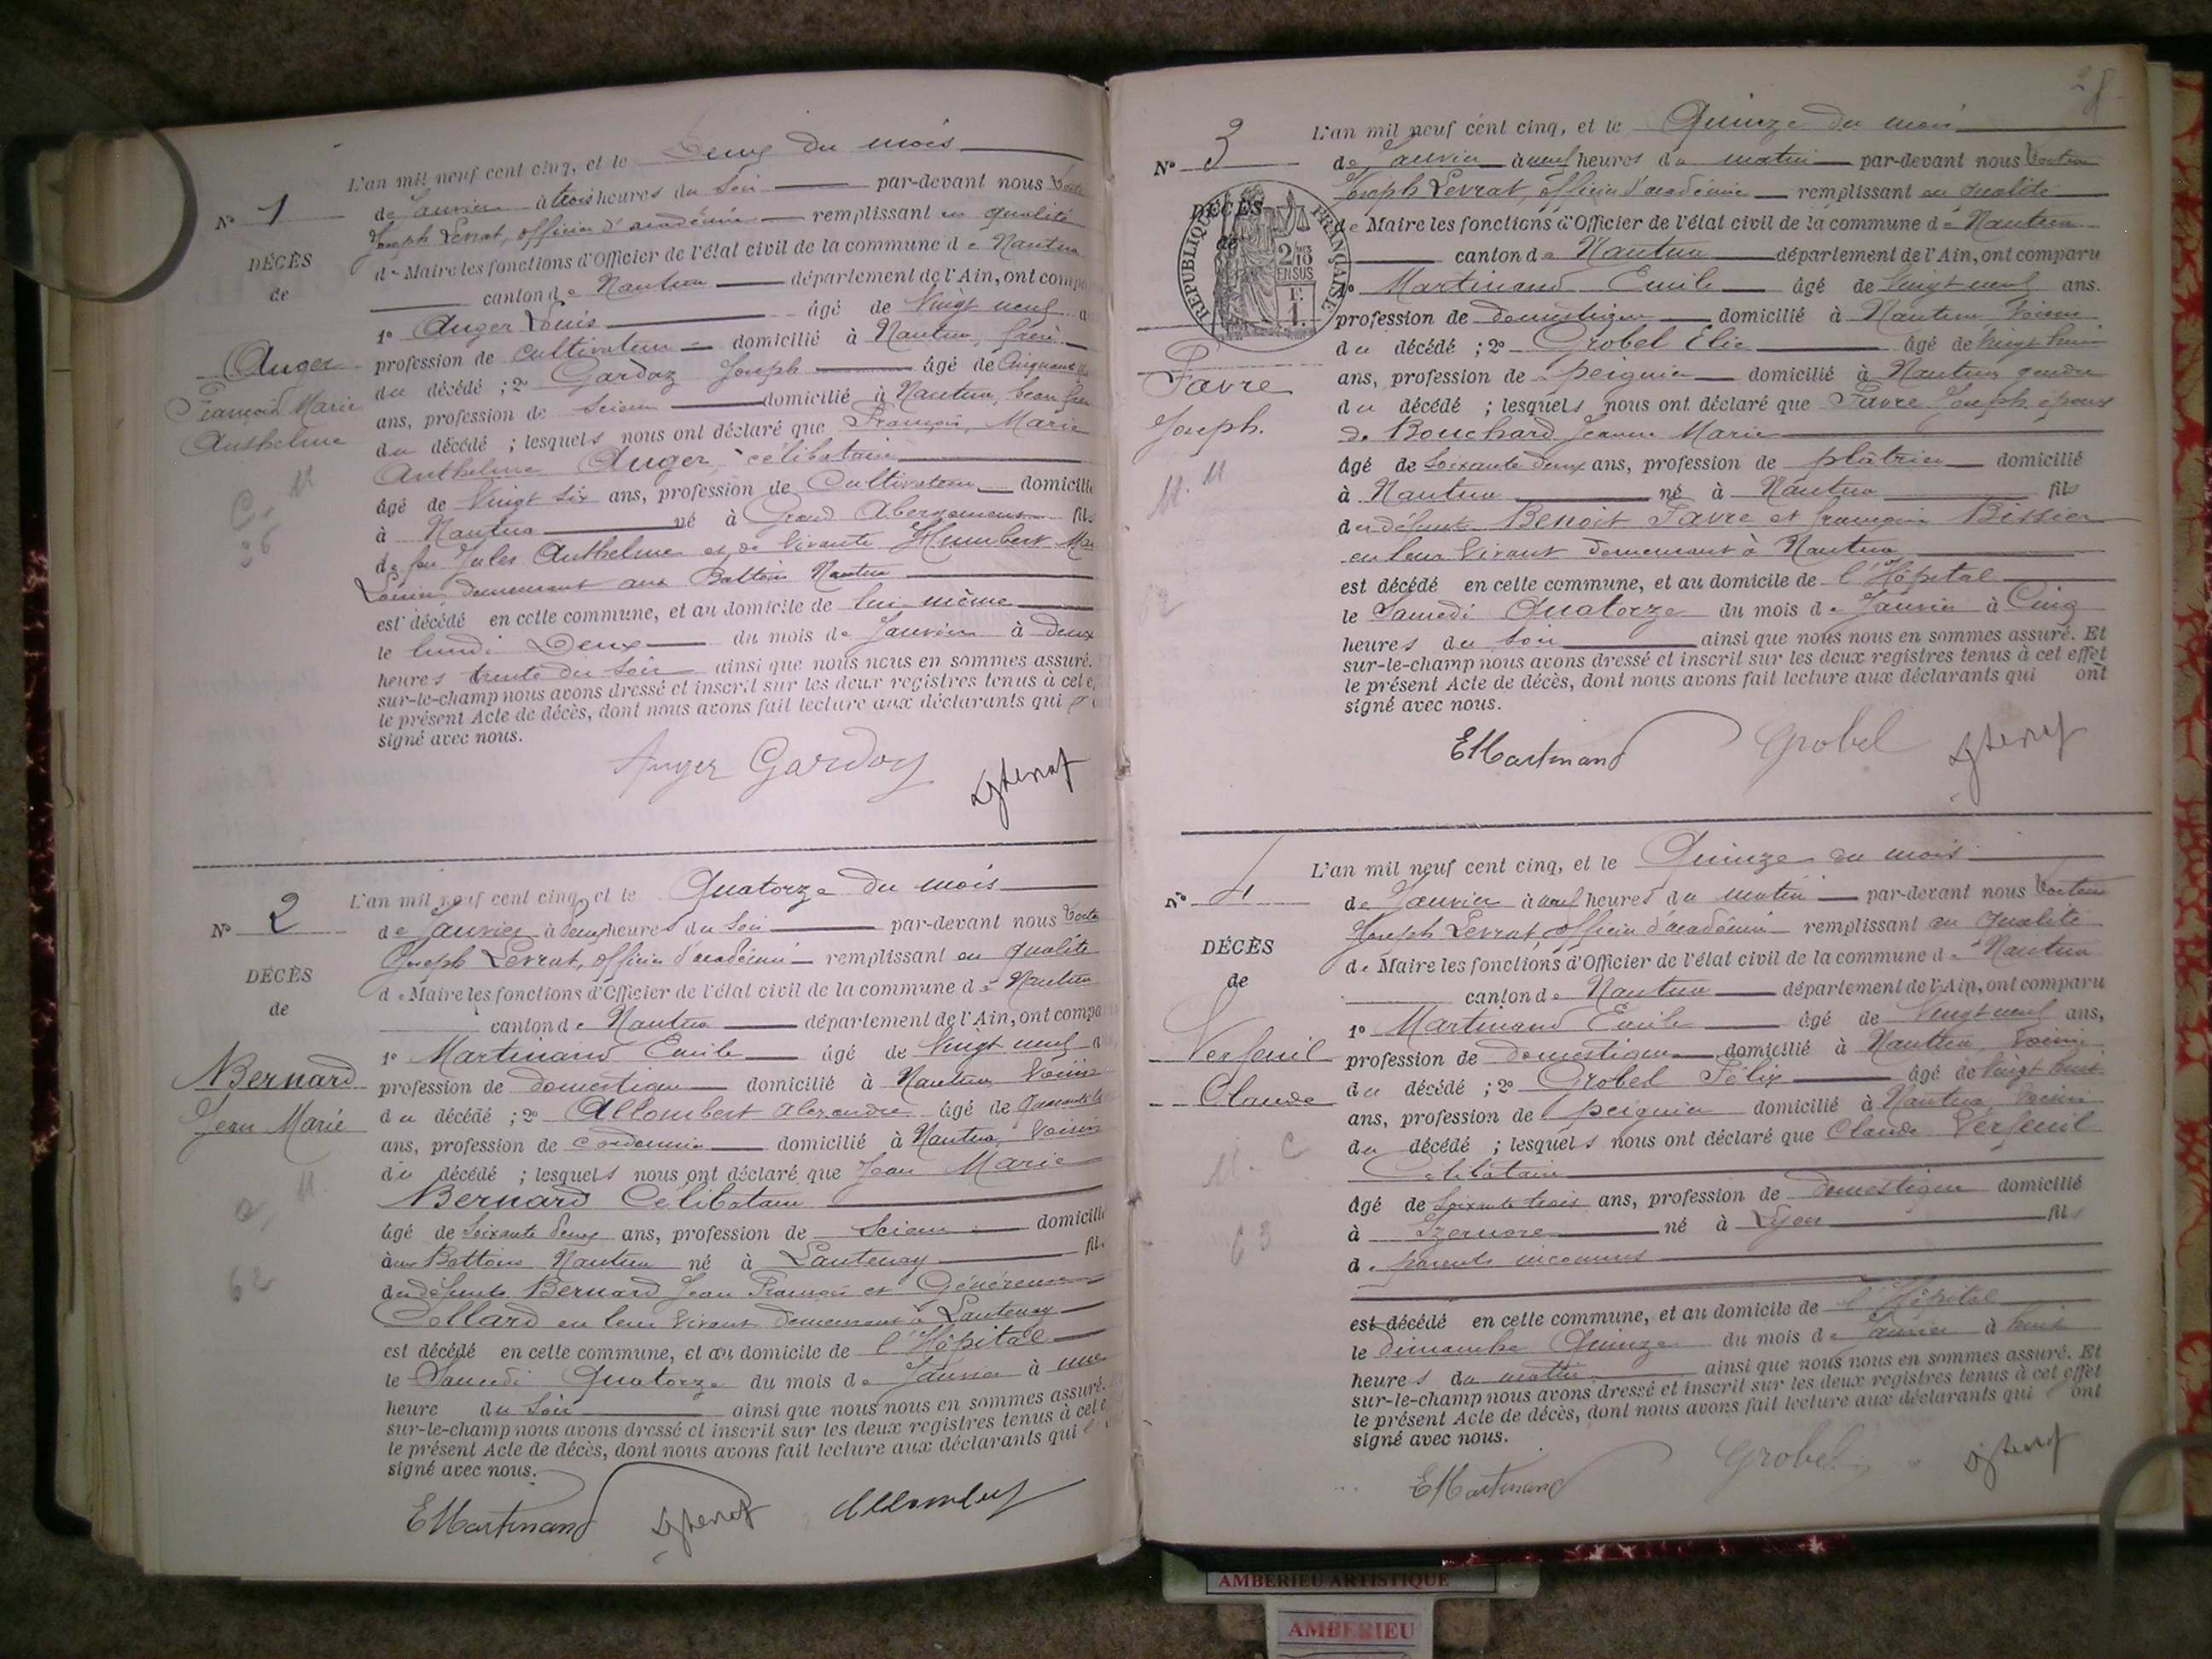 L'an mil neuf cent cinq, et le Deux du mois
N° 1
de Janvier à trois heures du Soir par-devant nous
Joseph Levrat, officier d'académie remplissant en qualité
DÉCÈS
de
de Maire les fonctions d'Officier de l'état civil de la commune de Nantua
canton de Nantua département de l'Ain, ont comp
1° Auger Louis âgé de Vingt neuf
Auger
François Marie
Anthelme
profession de cultivateur domicilié à Nantua, frère
du décédé ; 2° Gardaz Joseph âgé de Cinquante
ans, profession de Scieur domicilié à Nantua, beau frère
du décédé ; lesquels nous ont déclaré que François, Marie
Anthelme Auger, célibataire
C. M
26
âgé de Vingt six ans, profession de Cultivateur domicilié
à Nantua né à Grand Abergement fils
de feu Jules Anthelme et de vivante Humbert
Louise demeurant aux Battoirs Nantua
est décédé en cette commune, et au domicile de lui même
le lundi Deux du mois de Janvier à deux
heures trente du soir ainsi que nous nous en sommes assuré.
sur-le-champ nous avons dressé et inscrit sur les deux registres tenus à cet e
le présent Acte de décès, dont nous avons fait lecture aux déclarants qui
signé avec nous.
Auger Gardaz
L'an mil neuf cent cinq, et le Quatorze du mois
N° 2
de Janvier à deux heures du Soir par-devant nous
Joseph Levrat, officier d'académie remplissant en qualité
DÉCÈS
de
de Maire les fonctions d'Officier de l'état civil de la commune de Nantua
canton de Nantua département de l'Ain, ont compa
1° Martinand Emile âgé de Vingt neuf a
Bernard
Jean Marie
profession de domestique domicilié à Nantua Voisin
du décédé ; 2° Allombert Alexandre âgé de
ans, profession de cordonnier domicilié à Nantua, Voisin
du décédé ; lesquels nous ont déclaré que Jean Marie
Bernard Célibataire
M.
62
âgé de Soixante deux ans, profession de Scieur domicilié
aux Battoirs Nantua né à Lantenay fils
des défunts Bernard Jean François et Généreuse
Collard en leur vivant demeurant à Lantenay
est décédé en cette commune, et au domicile de l'Hôpital
le Samedi Quatorze du mois de Janvier à une
heure du Soir ainsi que nous nous en sommes assuré.
sur-le-champ nous avons dressé et inscrit sur les deux registres tenus à cet e
le présent Acte de décès, dont nous avons fait lecture aux déclarants qui
signé avec nous.
EMartinand Allombert
28
L'an mil neuf cent cinq, et le Quinze du mois
N° 3
de Janvier à neuf heures du matin par-devant nous Docteur
Joseph Levrat, officier d'académie remplissant en qualité
DÉCÈS
de
RÉPUBLIQUE FRANÇAISE
2 10 EN SUS
de Maire les fonctions d'Officier de l'état civil de la commune de Nantua
canton de Nantua département de l'Ain, ont comparu
Martinand Emile âgé de Vingt neuf ans.
profession de domestique domicilié à Nantua Voisin
du décédé ; 2° Grobel Elie âgé de Vingt huit
Favre
Joseph.
ans, profession de peignier domicilié à Nantua gendre
du décédé ; lesquels nous ont déclaré que Favre Joseph époux
de Bouchard Jeanne Marie
M. M
âgé de Soixante deux ans, profession de plâtrier domicilié
à Nantua né à Nantua fils
des défunts Benoit Favre et françoise Bissier
en leur vivant demeurant à Nantua
est décédé en cette commune, et au domicile de l'Hôpital
le Samedi Quatorze du mois de Janvier à Cinq
heures du soir ainsi que nous nous en sommes assuré. Et
sur-le-champ nous avons dressé et inscrit sur les deux registres tenus à cet effet
le présent Acte de décès, dont nous avons fait lecture aux déclarants qui ont
signé avec nous.
EMartinand Grobel
L'an mil neuf cent cinq, et le Quinze du mois
N° 4
de Janvier à neuf heures du matin par-devant nous Docteur
Joseph Levrat, officier d'académie remplissant en qualité
DÉCÈS
de
de Maire les fonctions d'Officier de l'état civil de la commune de Nantua
canton de Nantua département de l'Ain, ont comparu
1° Martinand Emile âgé de Vingt neuf ans,
Verfeuil
Claude
profession de domestique domicilié à Nantua, Voisin
du décédé ; 2° Grobel Félix âgé de Vingt huit
ans, profession de peignier domicilié à Nantua, Voisin
du décédé ; lesquels nous ont déclaré que Claude Verfeuil
Célibataire
M. C
63
âgé de Soixante trois ans, profession de domestique domicilié
à Izernore né à Lyon fils
de parents inconnus
est décédé en cette commune, et au domicile de l'Hôpital
le Dimanche Quinze du mois de Janvier à huit
heures du matin ainsi que nous nous en sommes assuré. Et
sur-le-champ nous avons dressé et inscrit sur les deux registres tenus à cet effet
le présent Acte de décès, dont nous avons fait lecture aux déclarants qui ont
signé avec nous.
EMartinand Grobel
AMBERIEU ARTISTIQUE
AMBERIEU